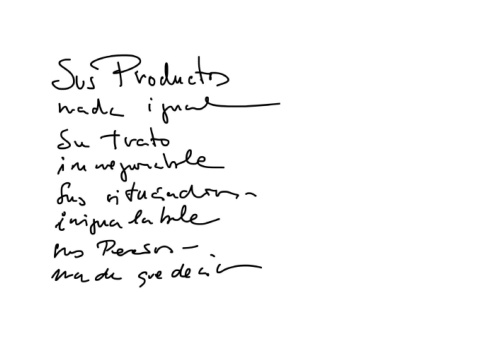 Sus Productos
nada igual
Su trato
inmejorable
Sus
inigualable
sus
nada que decir